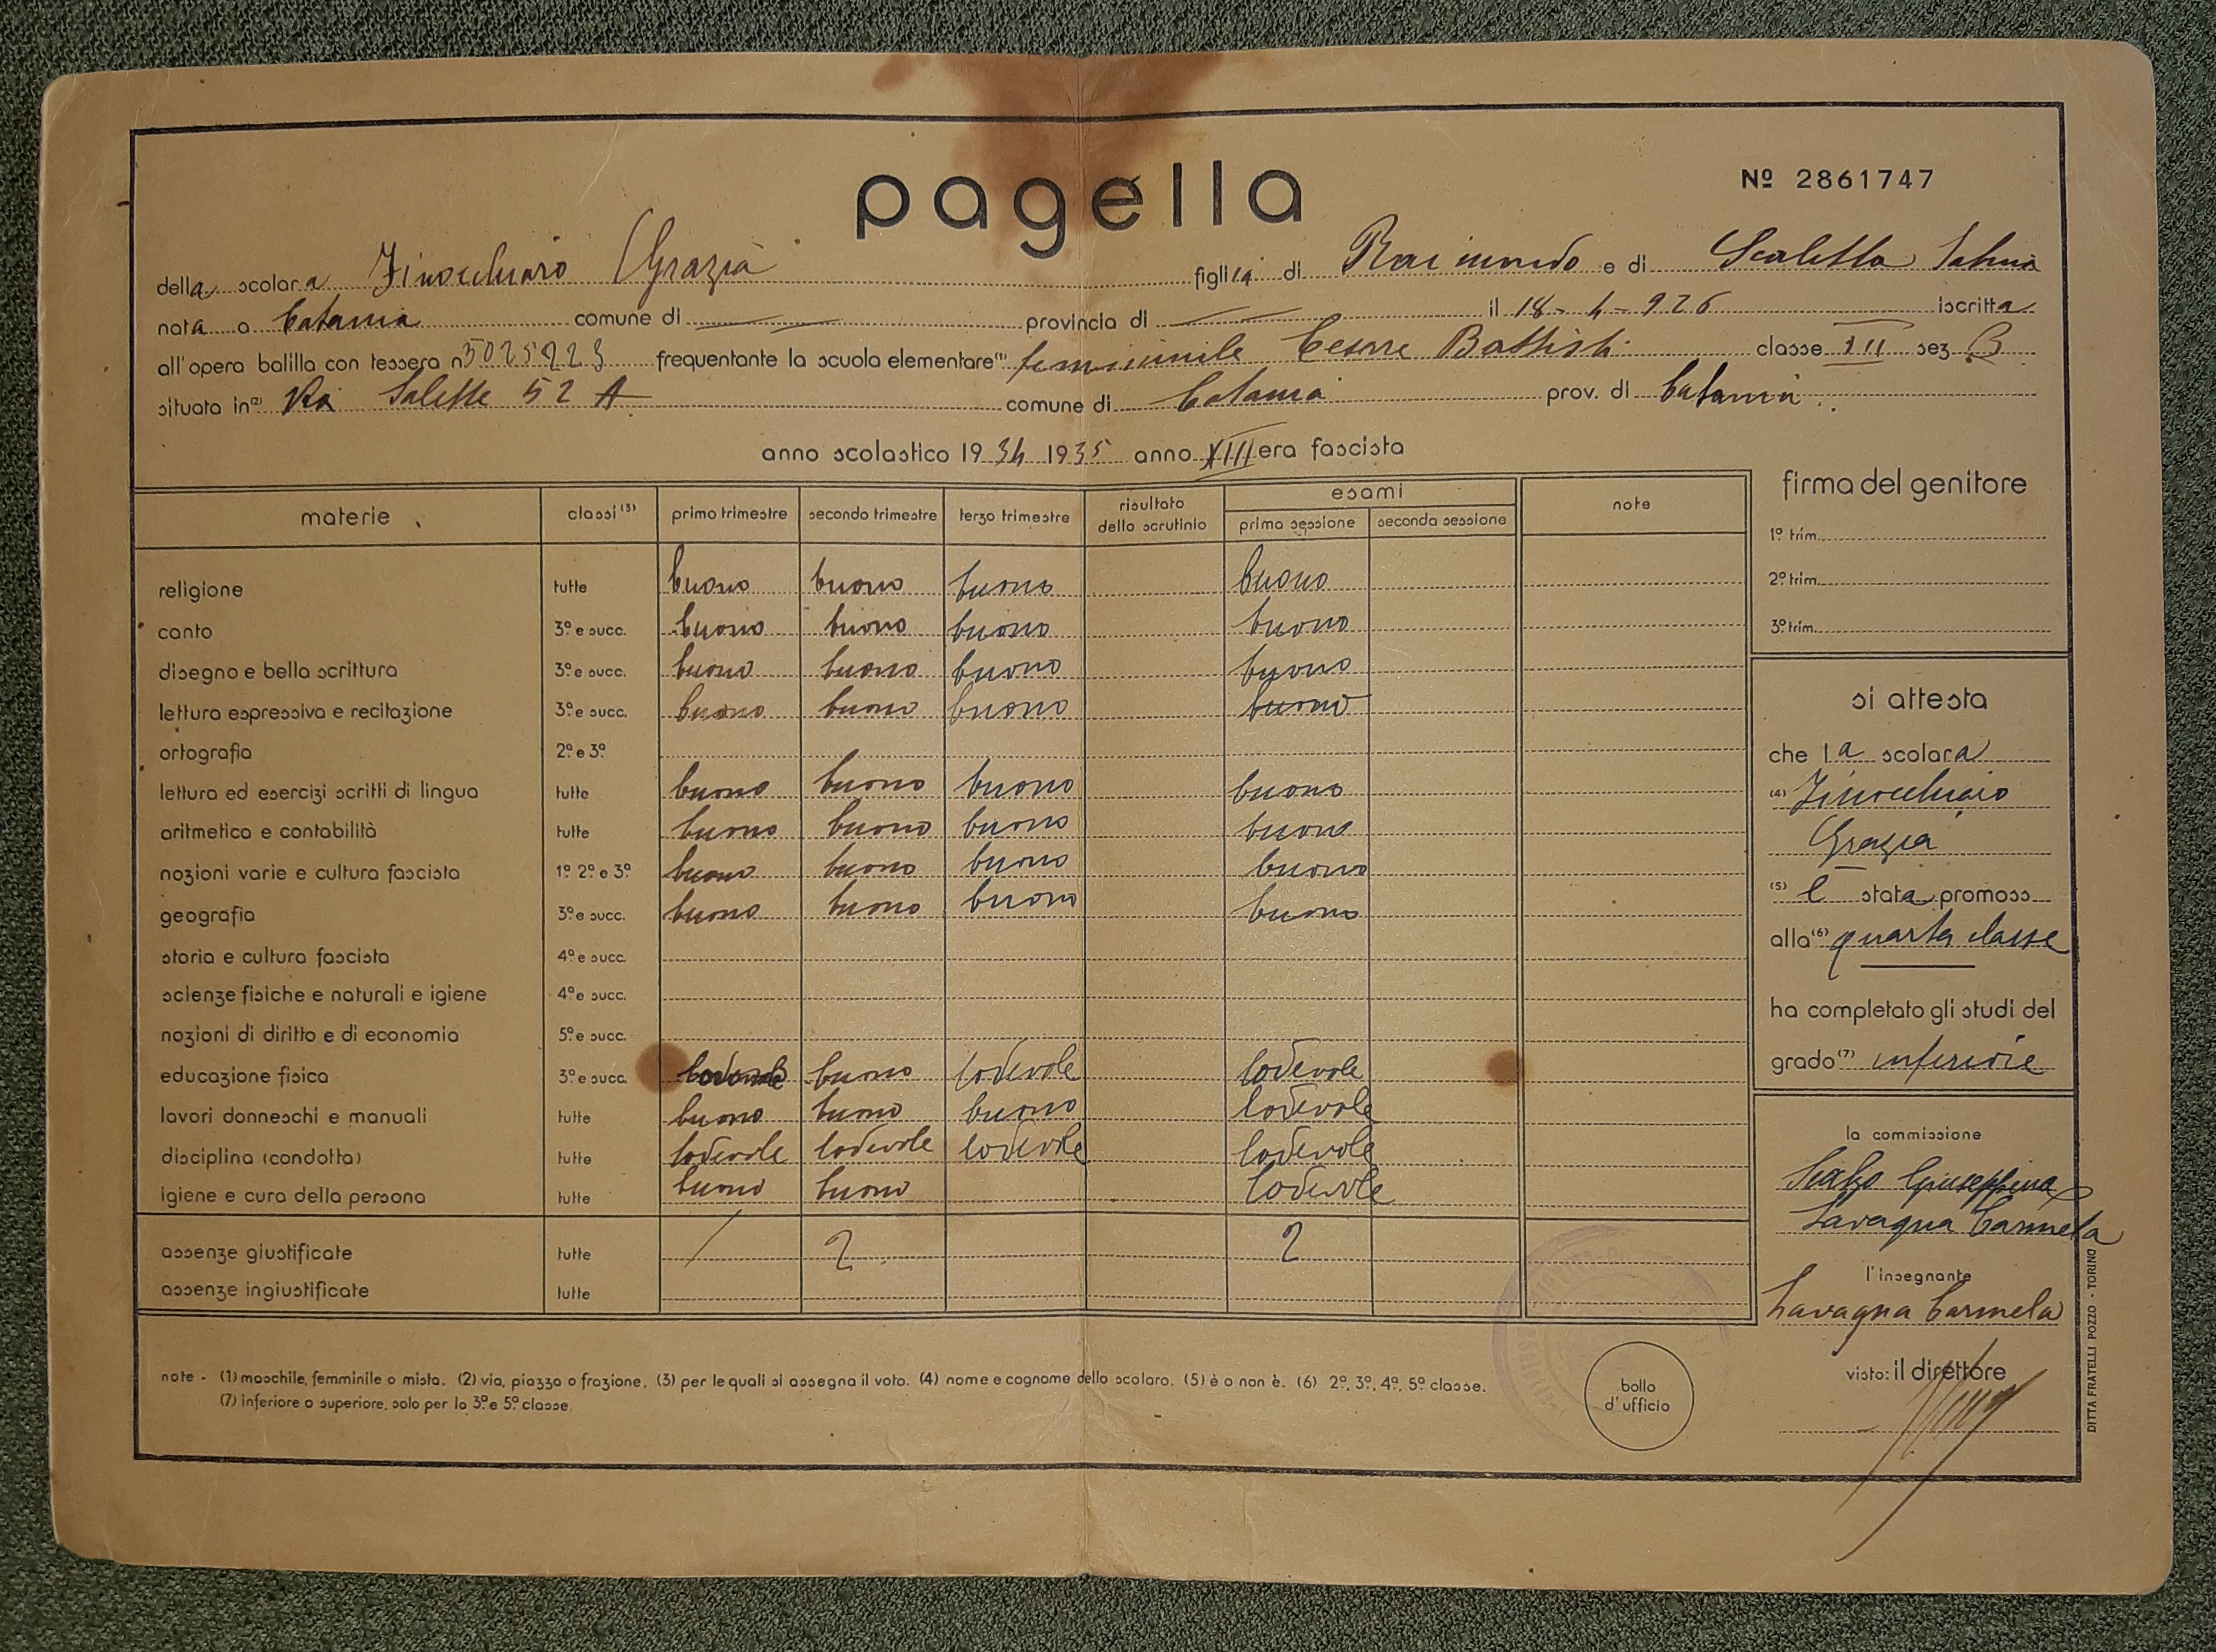 pagella
Nº 2861747
della scolara Finocchiaro Grazia figlia di Raimondo e di Scaletta
nata a Catania comune di provincia di il 18-4-926 Iscritta
all'opera balilla con tessera n 5025223 frequentante la scuola elementare (1) femminile Cesare Battisti classe III sez B
situata in (2) Via Salette 52 A comune di Catania prov. di Catania
anno scolastico 1934 1935 anno XIII era fascista
materie classi (3) primo trimestre secondo trimestre terzo trimestre risultato dello scrutinio esami prima sessione seconda sessione note
religione tutte buono buono buono buono
canto 3ª e succ. buono buono buono buono
disegno e bella scrittura 3ª e succ. buono buono buono buono
lettura espressiva e recitazione 3ª e succ. buono buono buono buono
ortografia 2ª e 3ª
lettura ed esercizi scritti di lingua tutte buono buono buono buono
aritmetica e contabilità tutte buono buono buono buono
nozioni varie e cultura fascista 1ª 2ª e 3ª buono buono buono buono
geografia 3ª e succ. buono buono buono buono
storia e cultura fascista 4ª e succ.
scienze fisiche e naturali e igiene 4ª e succ.
nozioni di diritto e di economia 5ª e succ.
educazione fisica 3ª e succ. buono lodevole lodevole
lavori donneschi e manuali tutte buono buono buono lodevole
disciplina (condotta) tutte lodevole lodevole lodevole lodevole
igiene e cura della persona tutte buono buono lodevole
assenze giustificate tutte / 2 2
assenze ingiustificate tutte
firma del genitore
1º trim.
2º trim.
3º trim.
si attesta
che la scolara
(4) Finocchiaro
Grazia
(5) è stata promoss
alla (6) quarta classe
ha completato gli studi del
grado (7) inferiore
la commissione
Giuseppina
Lavagna Carmela
l'insegnante
Lavagna Carmela
visto: il direttore
bollo
d'ufficio
note - (1) maschile, femminile o mista. (2) via, piazza o frazione. (3) per le quali si assegna il voto. (4) nome e cognome dello scolaro. (5) è o non è. (6) 2ª, 3ª, 4ª, 5ª classe.
(7) inferiore o superiore, solo per la 3ª e 5ª classe.
DITTA FRATELLI POZZO - TORINO